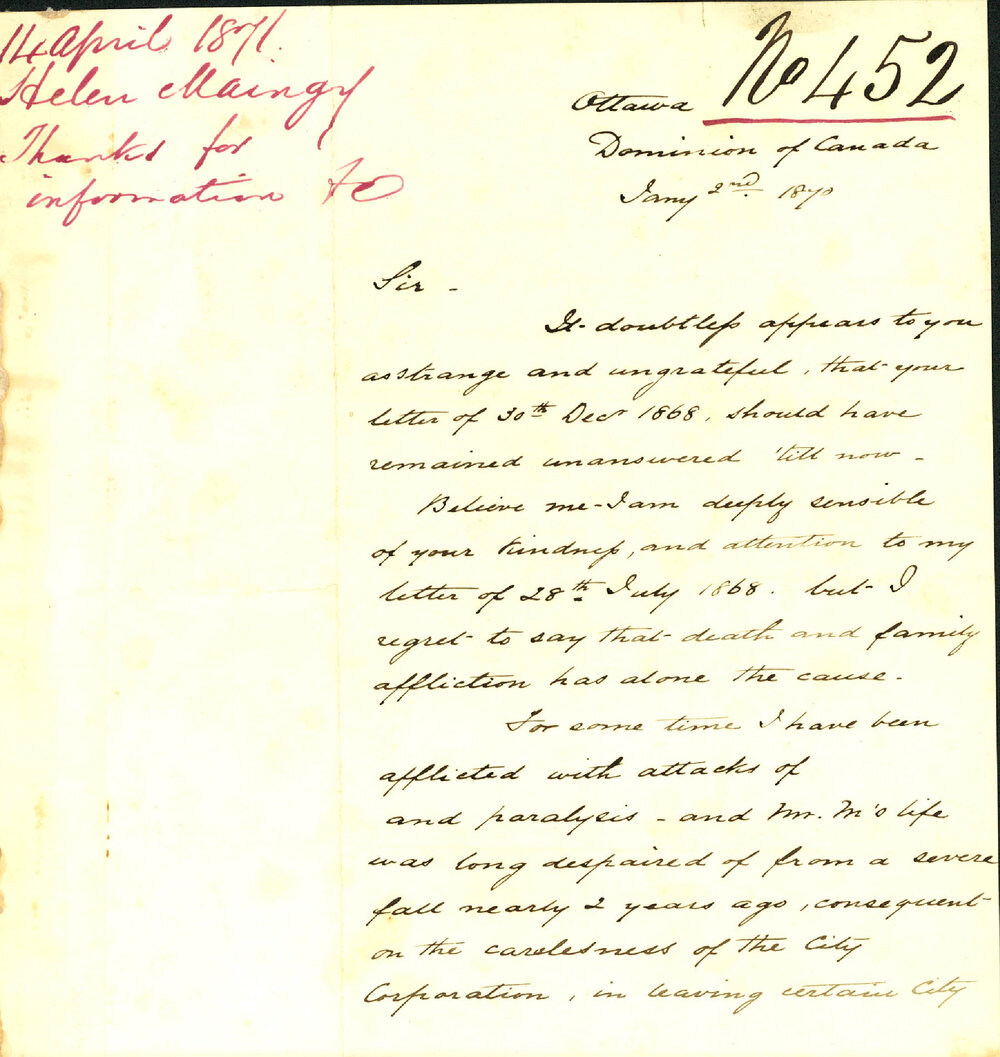 14 April 1871.
Helen Maingy
Thanks for
information &c
No 452
Ottawa
Dominion of Canada
Jany 2nd. 1870
Sir -
It doubtless appears to you
as strange and ungrateful, that your
letter of 30th Decr 1868, should have
remained unanswered 'till now -
Believe me - I am deeply sensible
of your kindness, and attention to my
letter of 28th July 1868. but I
regret to say that death and family
affliction has alone the cause -
For some time I have been
afflicted with attacks of
and paralysis - and Mr. M's life
was long despaired of from a severe
fall nearly 2 years ago, consequent
on the carelesness of the City
Corporation, in leaving certain City